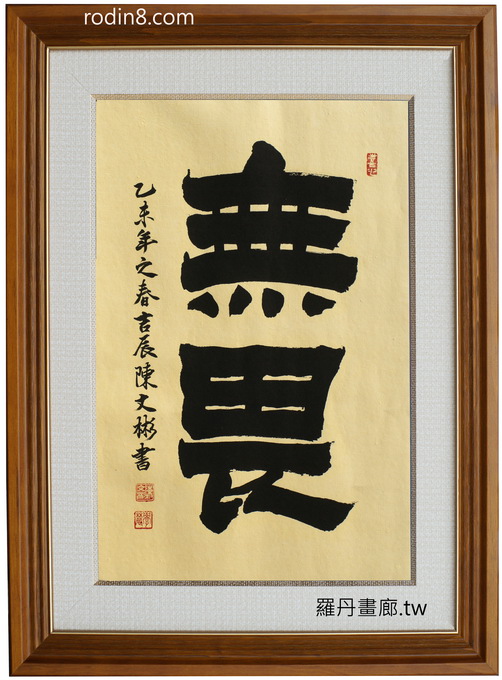 rodin8.com
無畏
乙未年之春吉辰陳文彬書
羅丹畫廊.tw